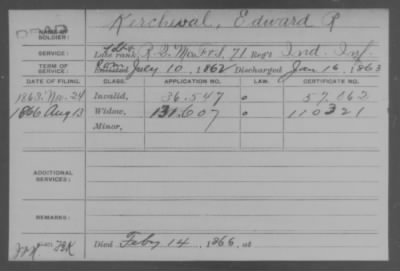 DEAD
NAME OF SOLDIER: Kercheval, Edward R
SERVICE: Late rank, R. Q. M. 71 Reg't Ind. Inf.
TERM OF SERVICE: Com July 10, 1862 Discharged Jan 16, 1863
DATE OF FILING. CLASS. APPLICATION NO. LAW. CERTIFICATE NO.
1863. Nov. 24 Invalid, 36.547 57.062
1866 Aug 13 Widow, 131.607 110321
Minor,
ADDITIONAL SERVICES:
REMARKS:
Died Feby 14, 1866, at